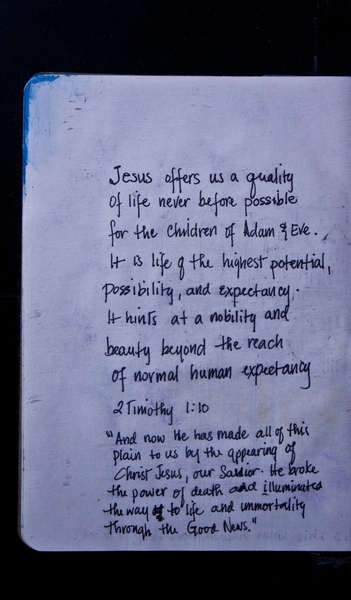 Jesus offers us a quality
of life never before possible
for the children of Adam & Eve.
It is life of the highest potential,
possibility, and expectancy.
It hints at a nobility and
beauty beyond the reach
of normal human expectancy
2 Timothy 1:10
"And now He has made all of this
plain to us by the appearing of
Christ Jesus, our Savior. He broke
the power of death and illuminated
the way to life and immortality
through the Good News."